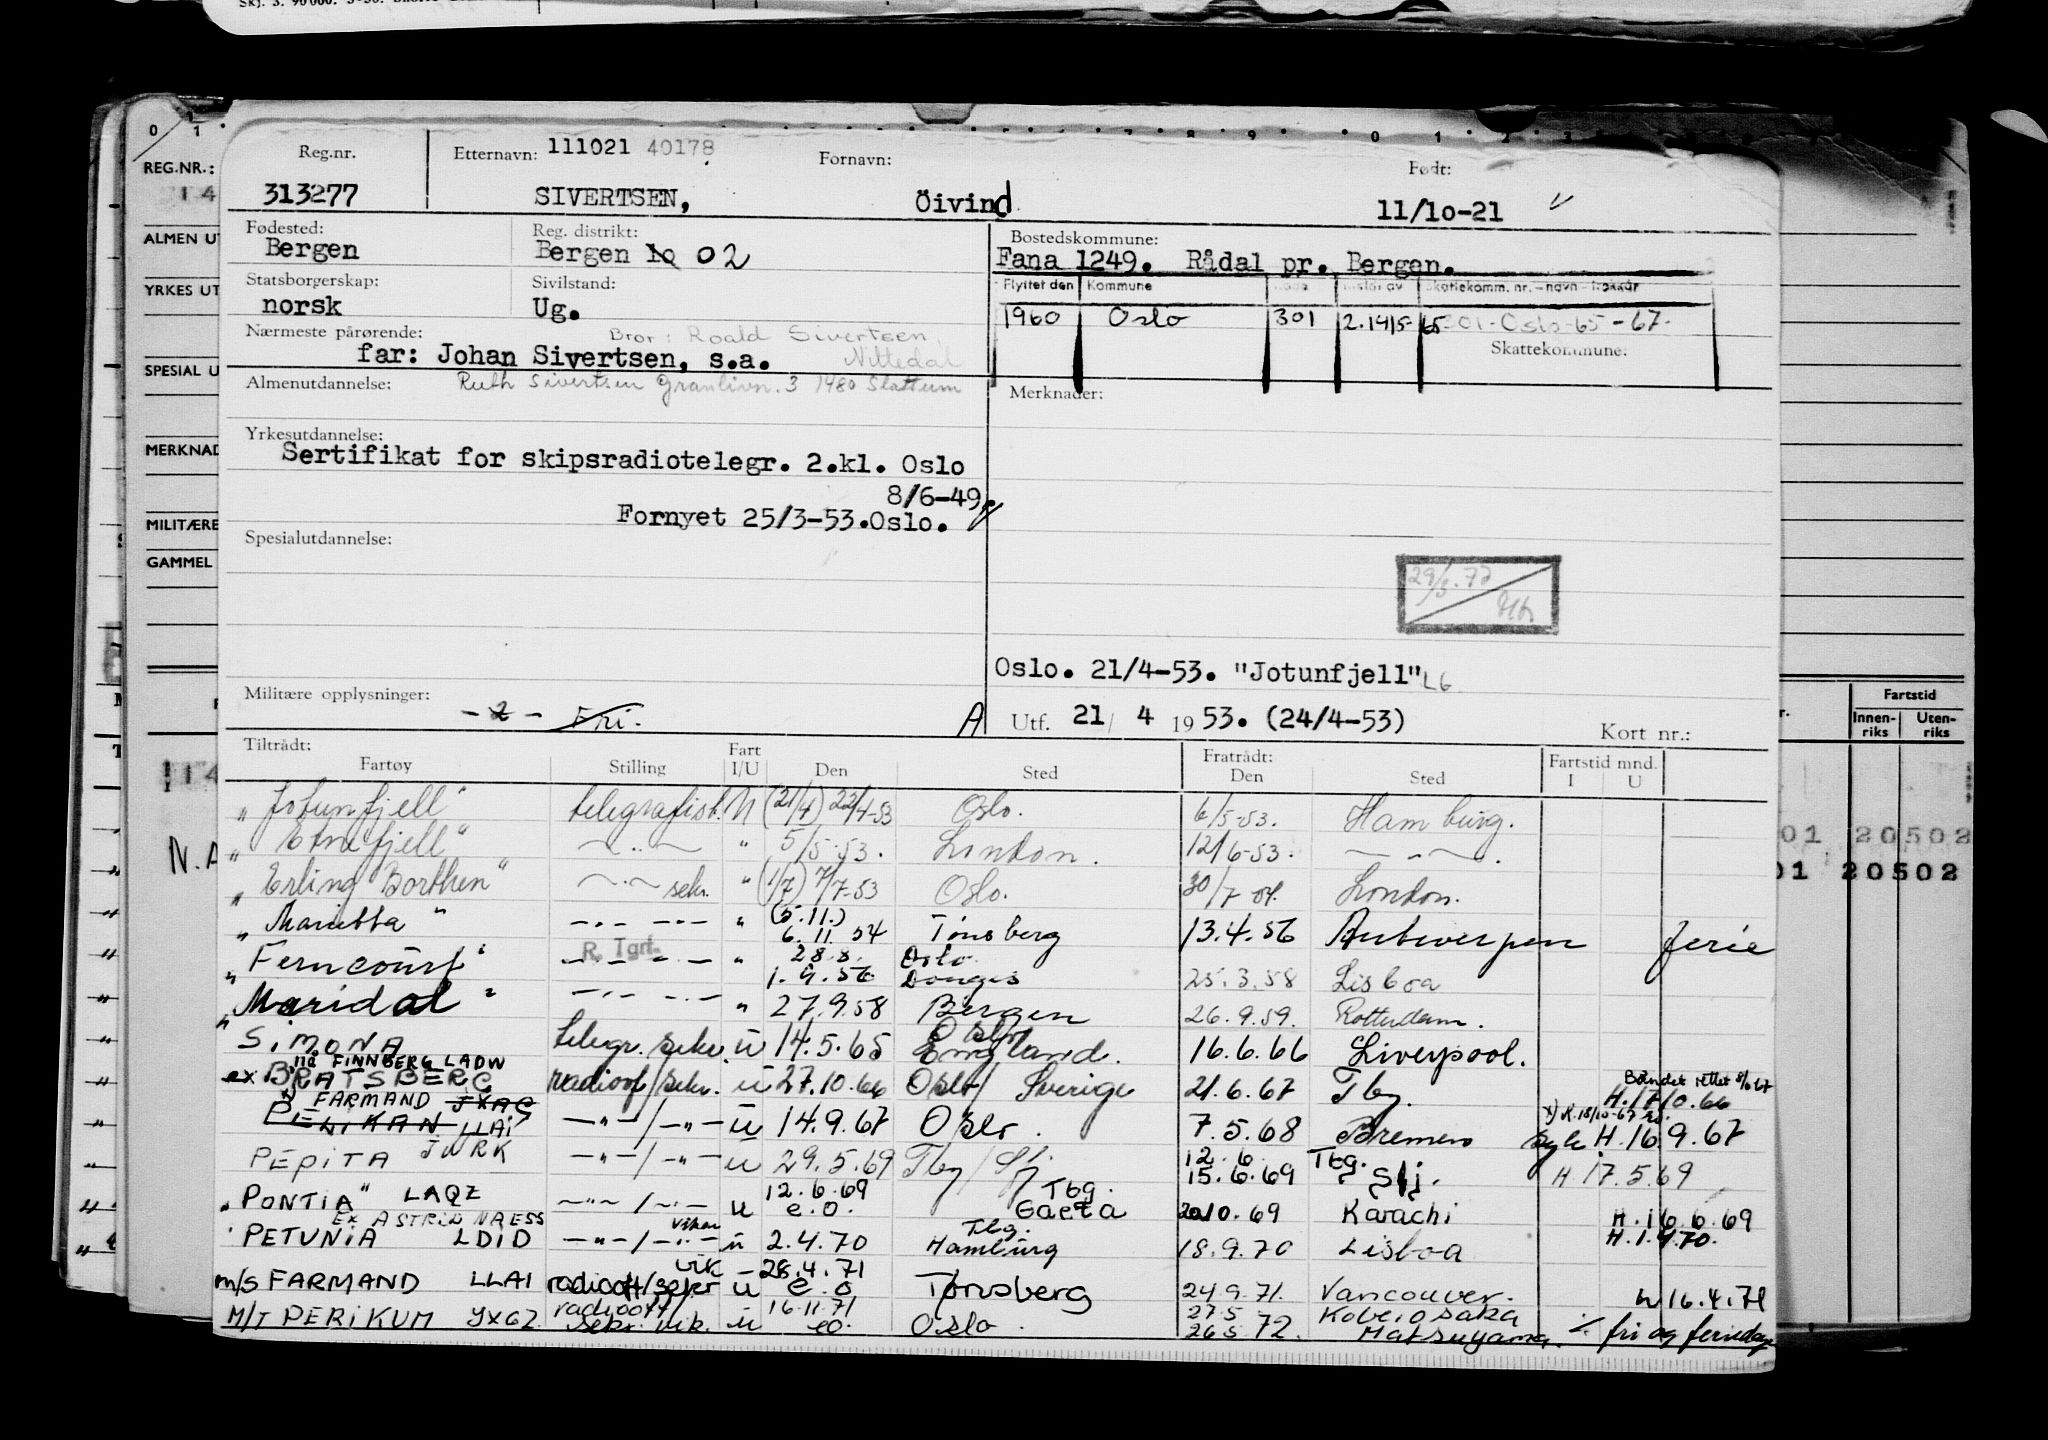 Reg.nr. Etternavn: 111021 40178 Fornavn: Født:
313277 SIVERTSEN, Öivind 11/10-21
Fødested: Reg. distrikt: Bostedskommune:
Bergen Bergen 10 02 Fana 1249. Rådal pr. Bergen.
Statsborgerskap: Sivilstand: Flyttet den Kommune
norsk Ug. 1960 Oslo 301 2.14/5-65 301-Oslo-65-67-
Nærmeste pårørende: Bror: Roald Sivertsen, Nittedal Skattekommune:
far: Johan Sivertsen, s.a.
Almenutdannelse: Ruth Sivertsen Granlivn. 3 1480 Slattum Merknader:
Yrkesutdannelse:
Sertifikat for skipsradiotelegr. 2.kl. Oslo
8/6-49
Fornyet 25/3-53.Oslo.
Spesialutdannelse:
Oslo. 21/4-53. "Jotunfjell" L6
Militære opplysninger: -2- Fri. A Utf. 21/ 4 1953. (24/4-53) Kort nr.:
Tiltrådt: Fart Fratrådt: Fartstid mnd.
Fartøy Stilling I/U Den Sted Den Sted I U
"Jotunfjell" telegrafist. U (21/4) 22/4-53 Oslo. 6/5-53. Hamburg.
"Etnefjell" —"— " 5/5-53. London. 12/6-53. —"—.
"Erling Borthen" —"— sekr. " (1/7) 7/7-53 Oslo. 30/7-54. London.
"Marietta" —"— —"— " (5.11.) 6.11.54 Tønsberg 13.4.56 Antwerpen ferie
"Ferncourt" R.Tgrf. —"— " 28.8. 1.9.56 Oslo Donges 25.3.58 Lisboa
"Maridal" —"— —"— " 27.9.58 Bergen 26.9.59. Rotterdam.
SIMONA telegr./sekr. u 14.5.65 Oslo/England. 16.6.66 Liverpool.
nå FINNBERG LADW
ex BRATSBERG radiooff/sekr. u 27.10.66 Oslo/ Sverige 21.6.67 Tbg. H.17/10.66
x) FARMAND JXAG
PELIKAN LLAI —"—/—"— u 14.9.67 Oslo. 7.5.68 Bremen syk H.16.9.67
PEPITA JWRK —"—/—"— u 29.5.69 Tbg/Sj. 12.6. 15.6.69 Tbg. Sj. H.17.5.69
"PONTIA" LAQZ —"—/—"— u 12.6.69 e.o. Tbg. Gaeta 20.10.69 Karachi H.16.6.69
EX ASTRID NAESS
"PETUNIA LDID —"—/—"— vikar u 2.4.70 Tbg. Hamburg 18.9.70 Lisboa H.1.4.70.
m/s FARMAND LLAI radiooff/sekr vik u 28.4.71 e.o Tønsberg 24.9.71. Vancouver. h 16.4.71
M/T PERIKUM JXGZ radiooff/sekr. vik. u 16.11.71 eo. Oslo. 27.5 26.5 72. Kobe/Osaka Matsuyama. fri og feriedager
REG.NR.:
ALMEN UT
YRKES UT
SPESIAL U
MERKNAD
MILITÆRE
GAMMEL
N.A
Fartstid
Innen-riks Uten-riks
01 20502
01 20502